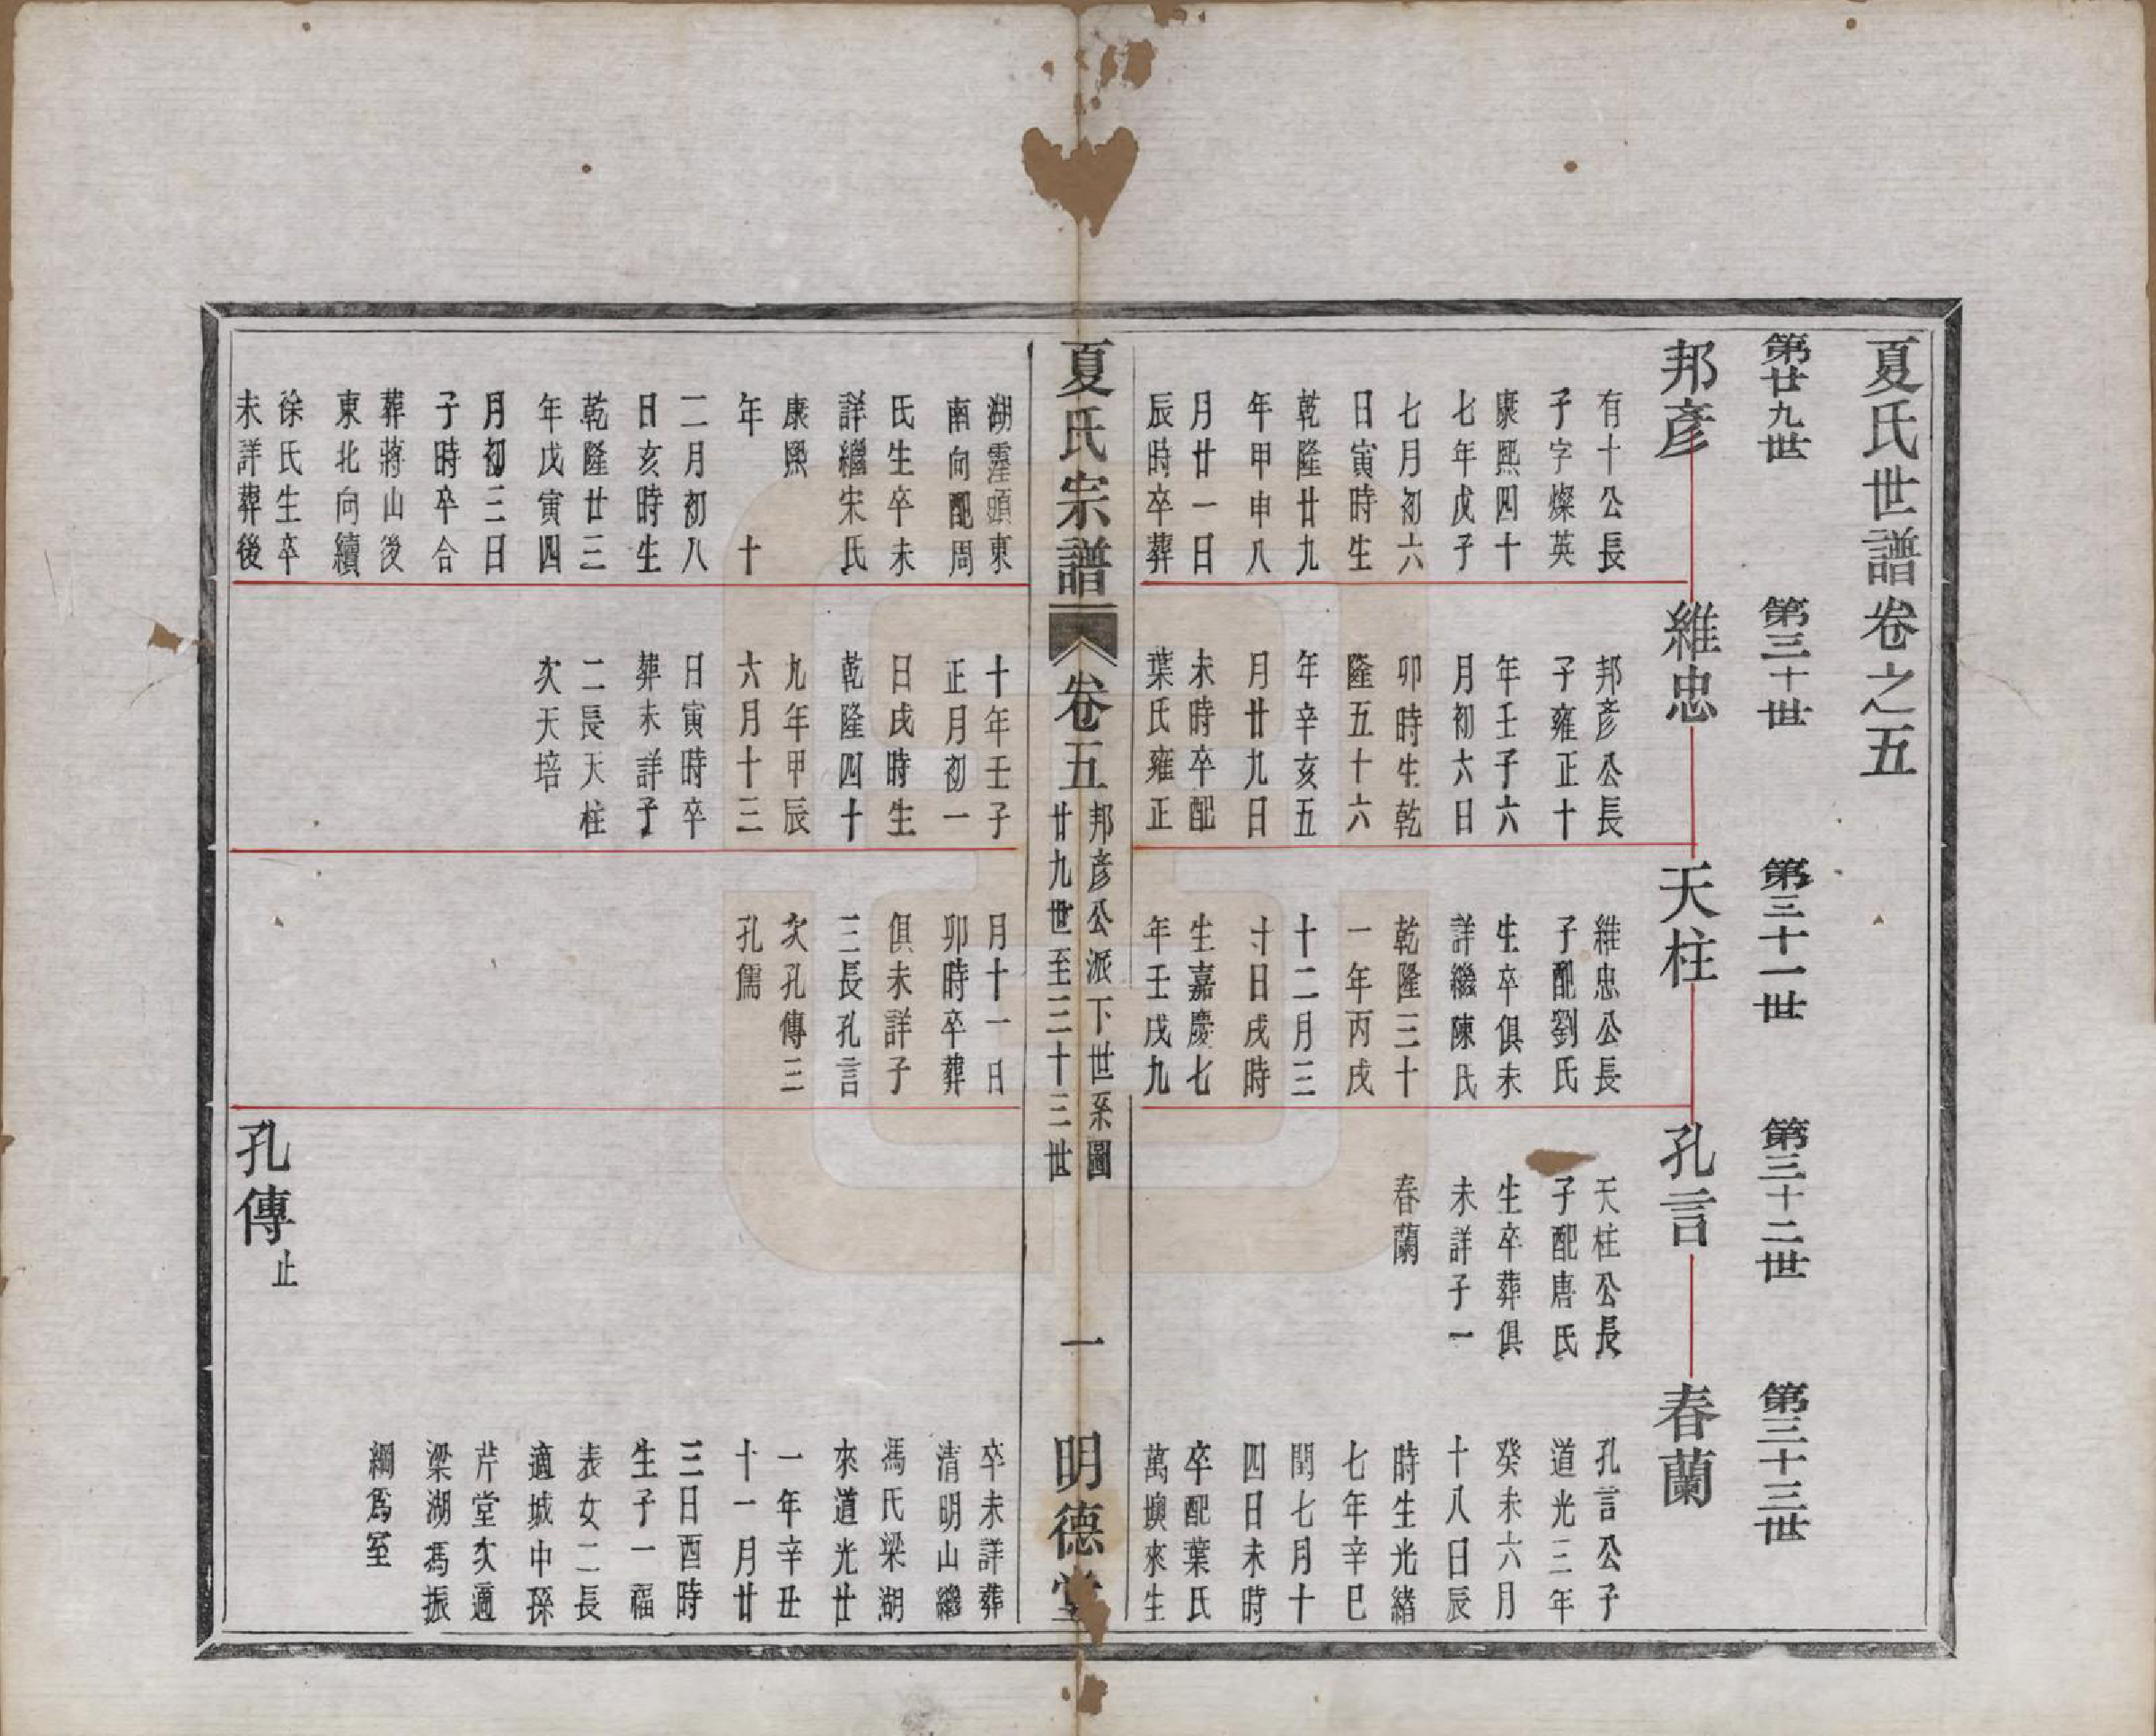 夏氏世譜卷之五
第廿九世
第三十世
第三十一世
第三十二世
第三十三世
邦彥
有十公長
子字燦英
康熙四十
七年戊子
七月初六
日寅時生
乾隆廿九
年甲申八
月廿一日
辰時卒葬
湖霪頭東
南向配周
氏生卒未
詳繼宋氏
康熙
年　　十
二月初八
日亥時生
乾隆廿三
年戊寅四
月初三日
子時卒合
葬蔣山後
東北向續
徐氏生卒
未詳葬後
維忠
邦彥公長
子雍正十
年壬子六
月初六日
卯時生乾
隆五十六
年辛亥五
月廿九日
未時卒配
葉氏雍正
十年壬子
正月初一
日戌時生
乾隆四十
九年甲辰
六月十三
日寅時卒
葬未詳子
二長天柱
次天培
天柱
維忠公長
子配劉氏
生卒俱未
詳繼陳氏
乾隆三十
一年丙戌
十二月三
十日戌時
生嘉慶七
年壬戌九
月十一日
卯時卒葬
俱未詳子
三長孔言
次孔傳三
孔儒
孔言
天柱公長
子配唐氏
生卒葬俱
未詳子一
春蘭
孔傳止
春蘭
孔言公子
道光三年
癸未六月
十八日辰
時生光緒
七年辛巳
閏七月十
四日未時
卒配葉氏
萬㙔來生
卒未詳葬
清明山繼
馮氏梁湖
來道光廿
一年辛丑
十一月廿
三日酉時
生子一福
表女二長
適城中孫
芹堂次適
梁湖馮振
綱爲室
夏氏宗譜
卷五
邦彥公派下世系圖
廿九世至三十三世
一
明德堂